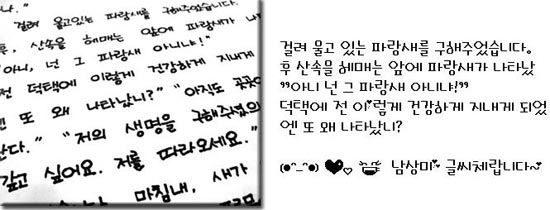 나."
걸려 울고있는 파랑새를 구해주었습니다.
후, 산속을 헤매는 앞에 파랑새가 나타
"아니, 너 그 파랑새 아니냐!"
전 덕택에 이렇게 건강하게 지내게
엔 또 왜 나타났니?" "아직도 곳곳
난다." "저의 생명을 구해주셨으
갚고 싶어요. 저를 따라오세요."
마침내, 새가
걸려 울고 있는 파랑새를 구해주었습니다.
후 산속을 헤매는 앞에 파랑새가 나타났
"아니 너 그 파랑새 아니냐!"
덕택에 전 이렇게 건강하게 지내게 되었
엔 또 왜 나타났니?
(●^_^●) ♥♡ 남상미 글씨체랍니다~